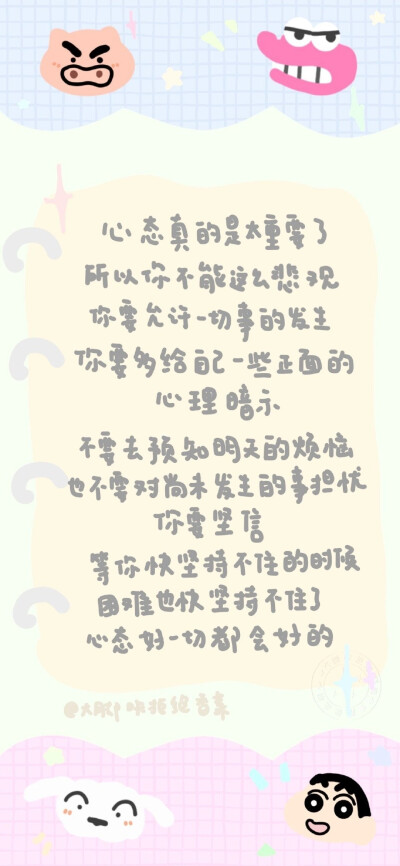 心态真的是太重要了
所以你不能这么悲观
你要允许一切事的发生
你要多给自己一些正面的
心理暗示
不要去预知明天的烦恼
也不要对尚未发生的事担忧
你要坚信
等你快坚持不住的时候
困难也快坚持不住了
心态好一切都会好的